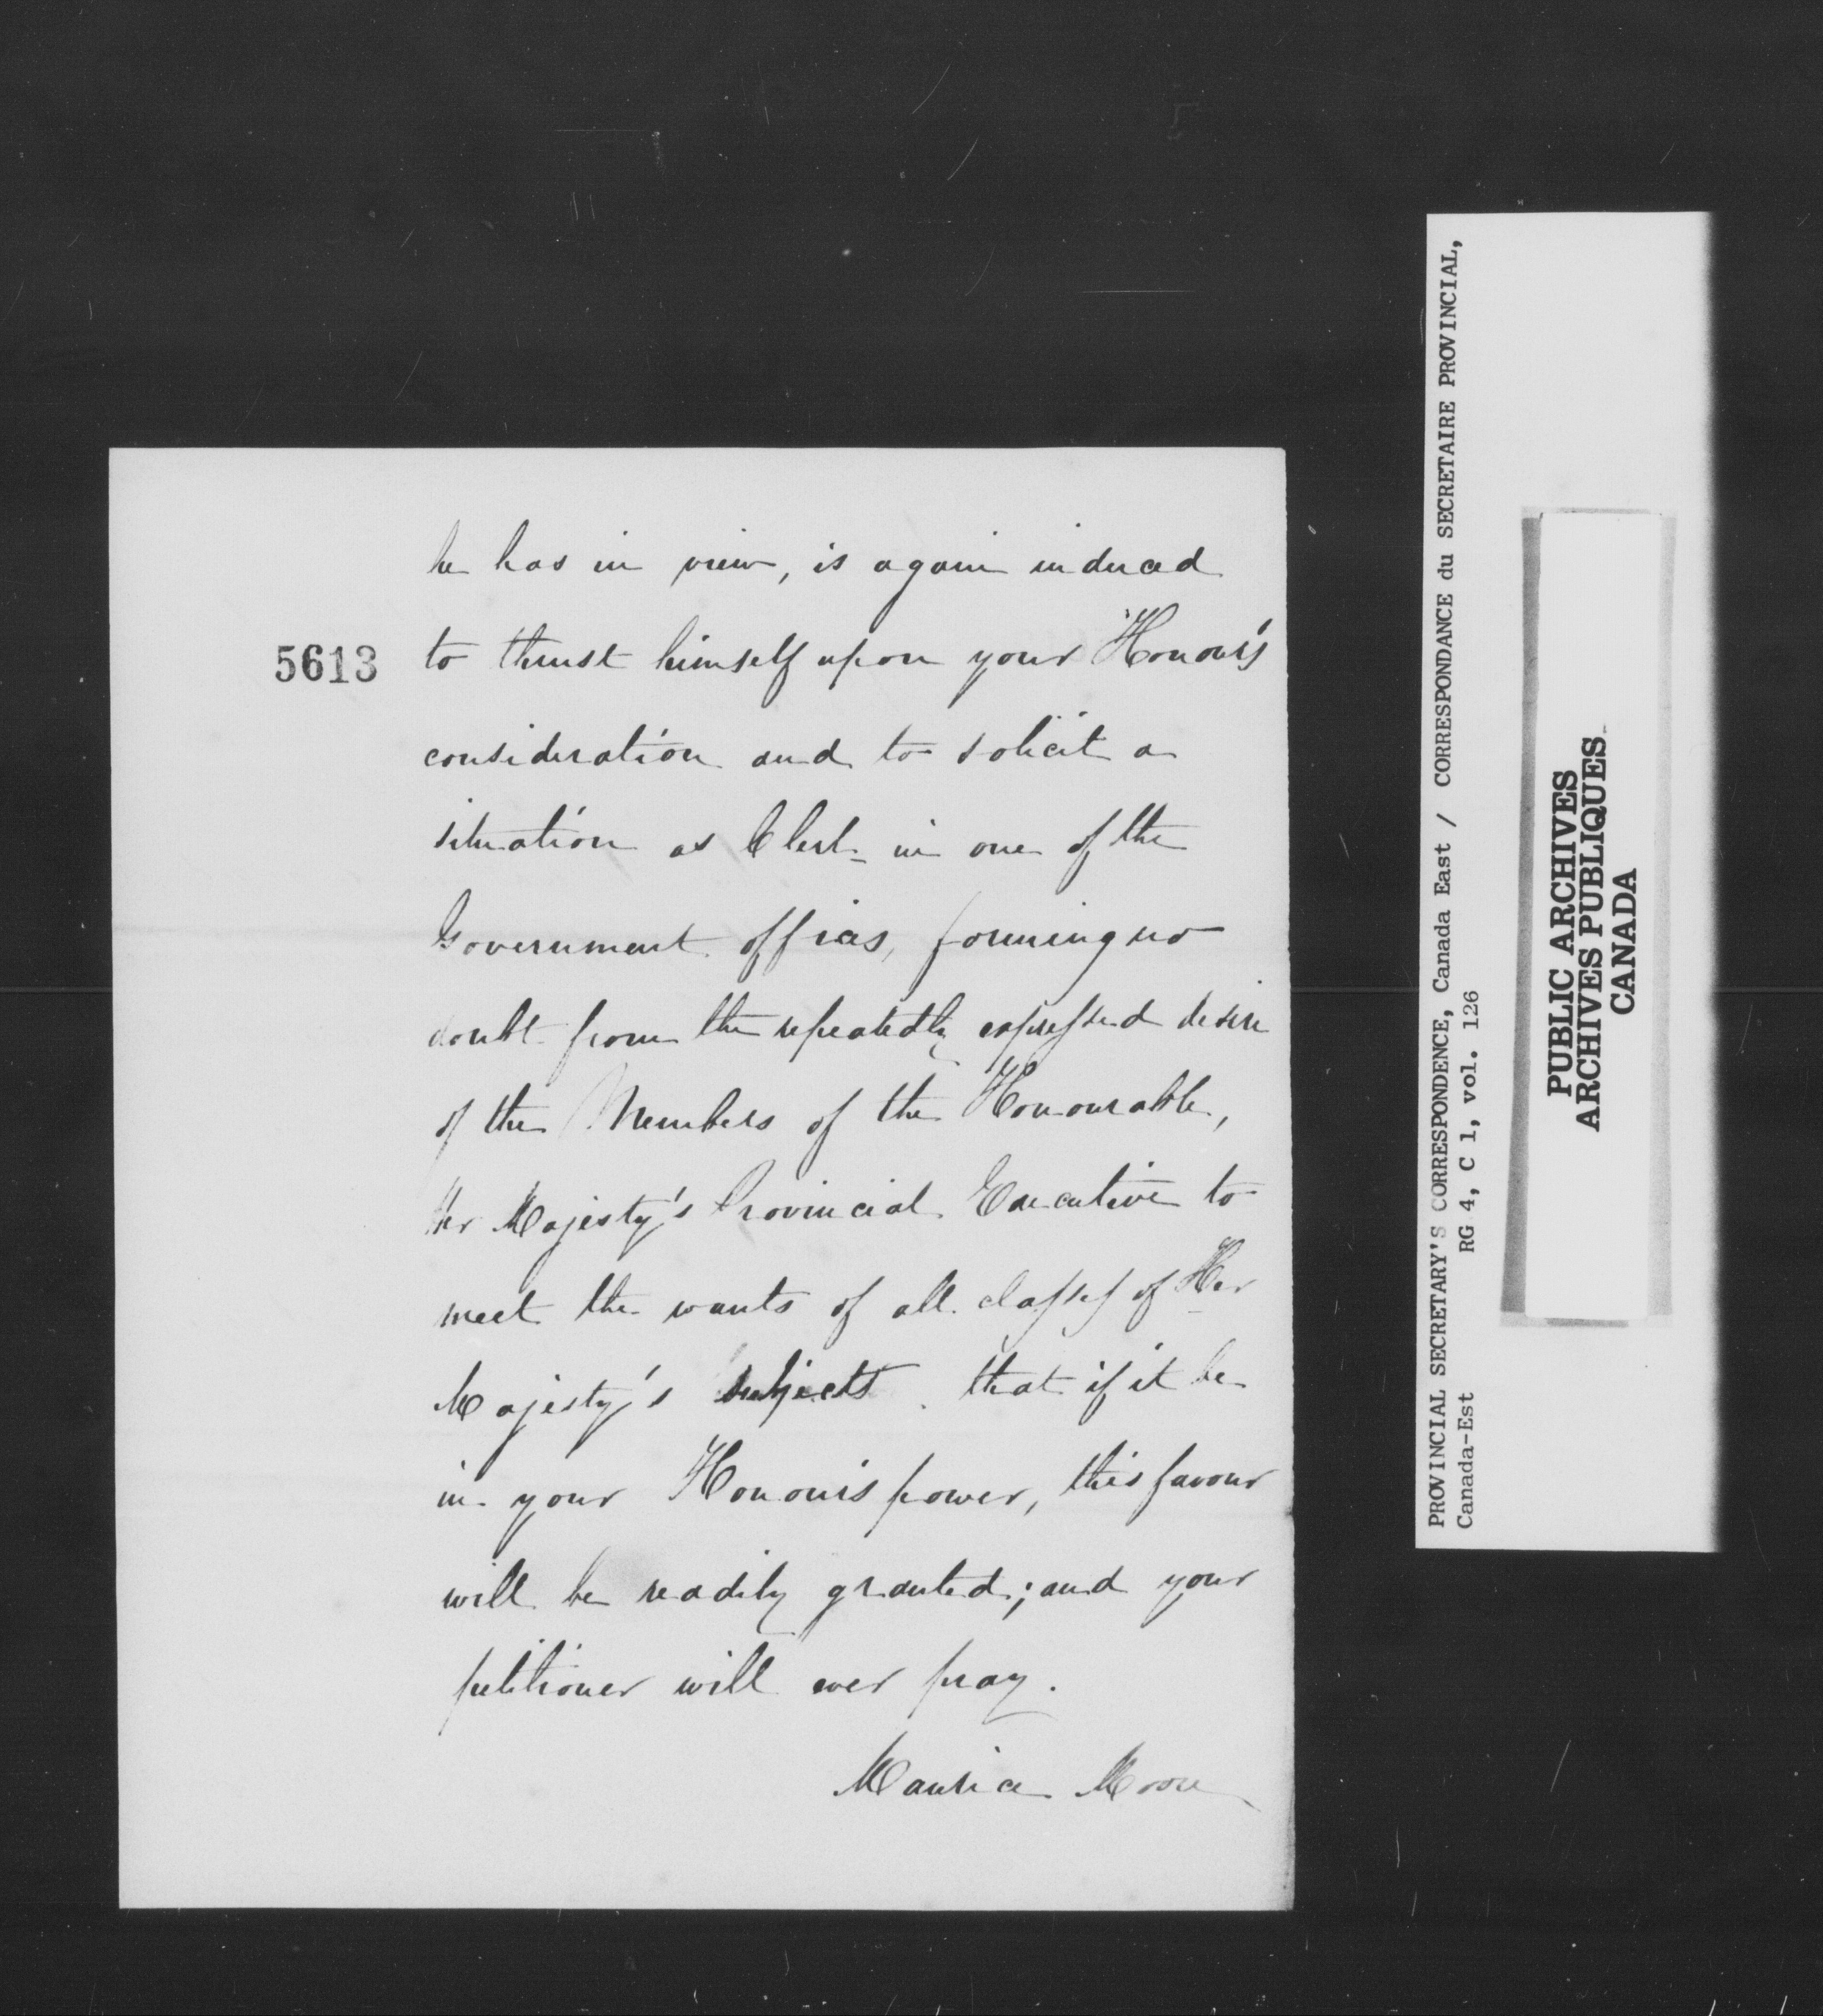 he has in view, is again induced
5613 to thrust himself upon your Honour's
consideration and to solicit a
situation as Clerk in one of the
Government offices, forming no
doubt from the repeatedly expressed desire
of the Members of the Honourable,
Her Majesty's Provincial Executive to
meet the wants of all classes of Her
Majesty's subjects that if it be
in your Honour's power, this favour
will be readily granted; and your
petitioner will ever pray.
Maurice Moore
PROVINCIAL SECRETARY'S CORRESPONDENCE, Canada East / CORRESPONDANCE du SECRETAIRE PROVINCIAL,
Canada-Est RG 4, C 1, vol. 126
PUBLIC ARCHIVES
ARCHIVES PUBLIQUES
CANADA